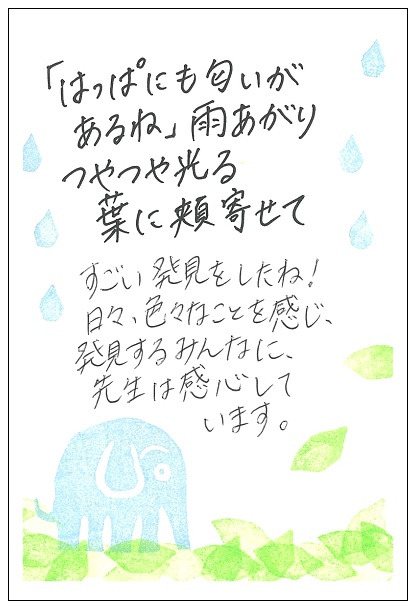 「はっぱにも匂いが
あるね」雨あがり
つやつや光る
葉に頬寄せて
すごい発見をしたね!
日々、色々なことを感じ、
発見するみんなに、
先生は感心して
います。